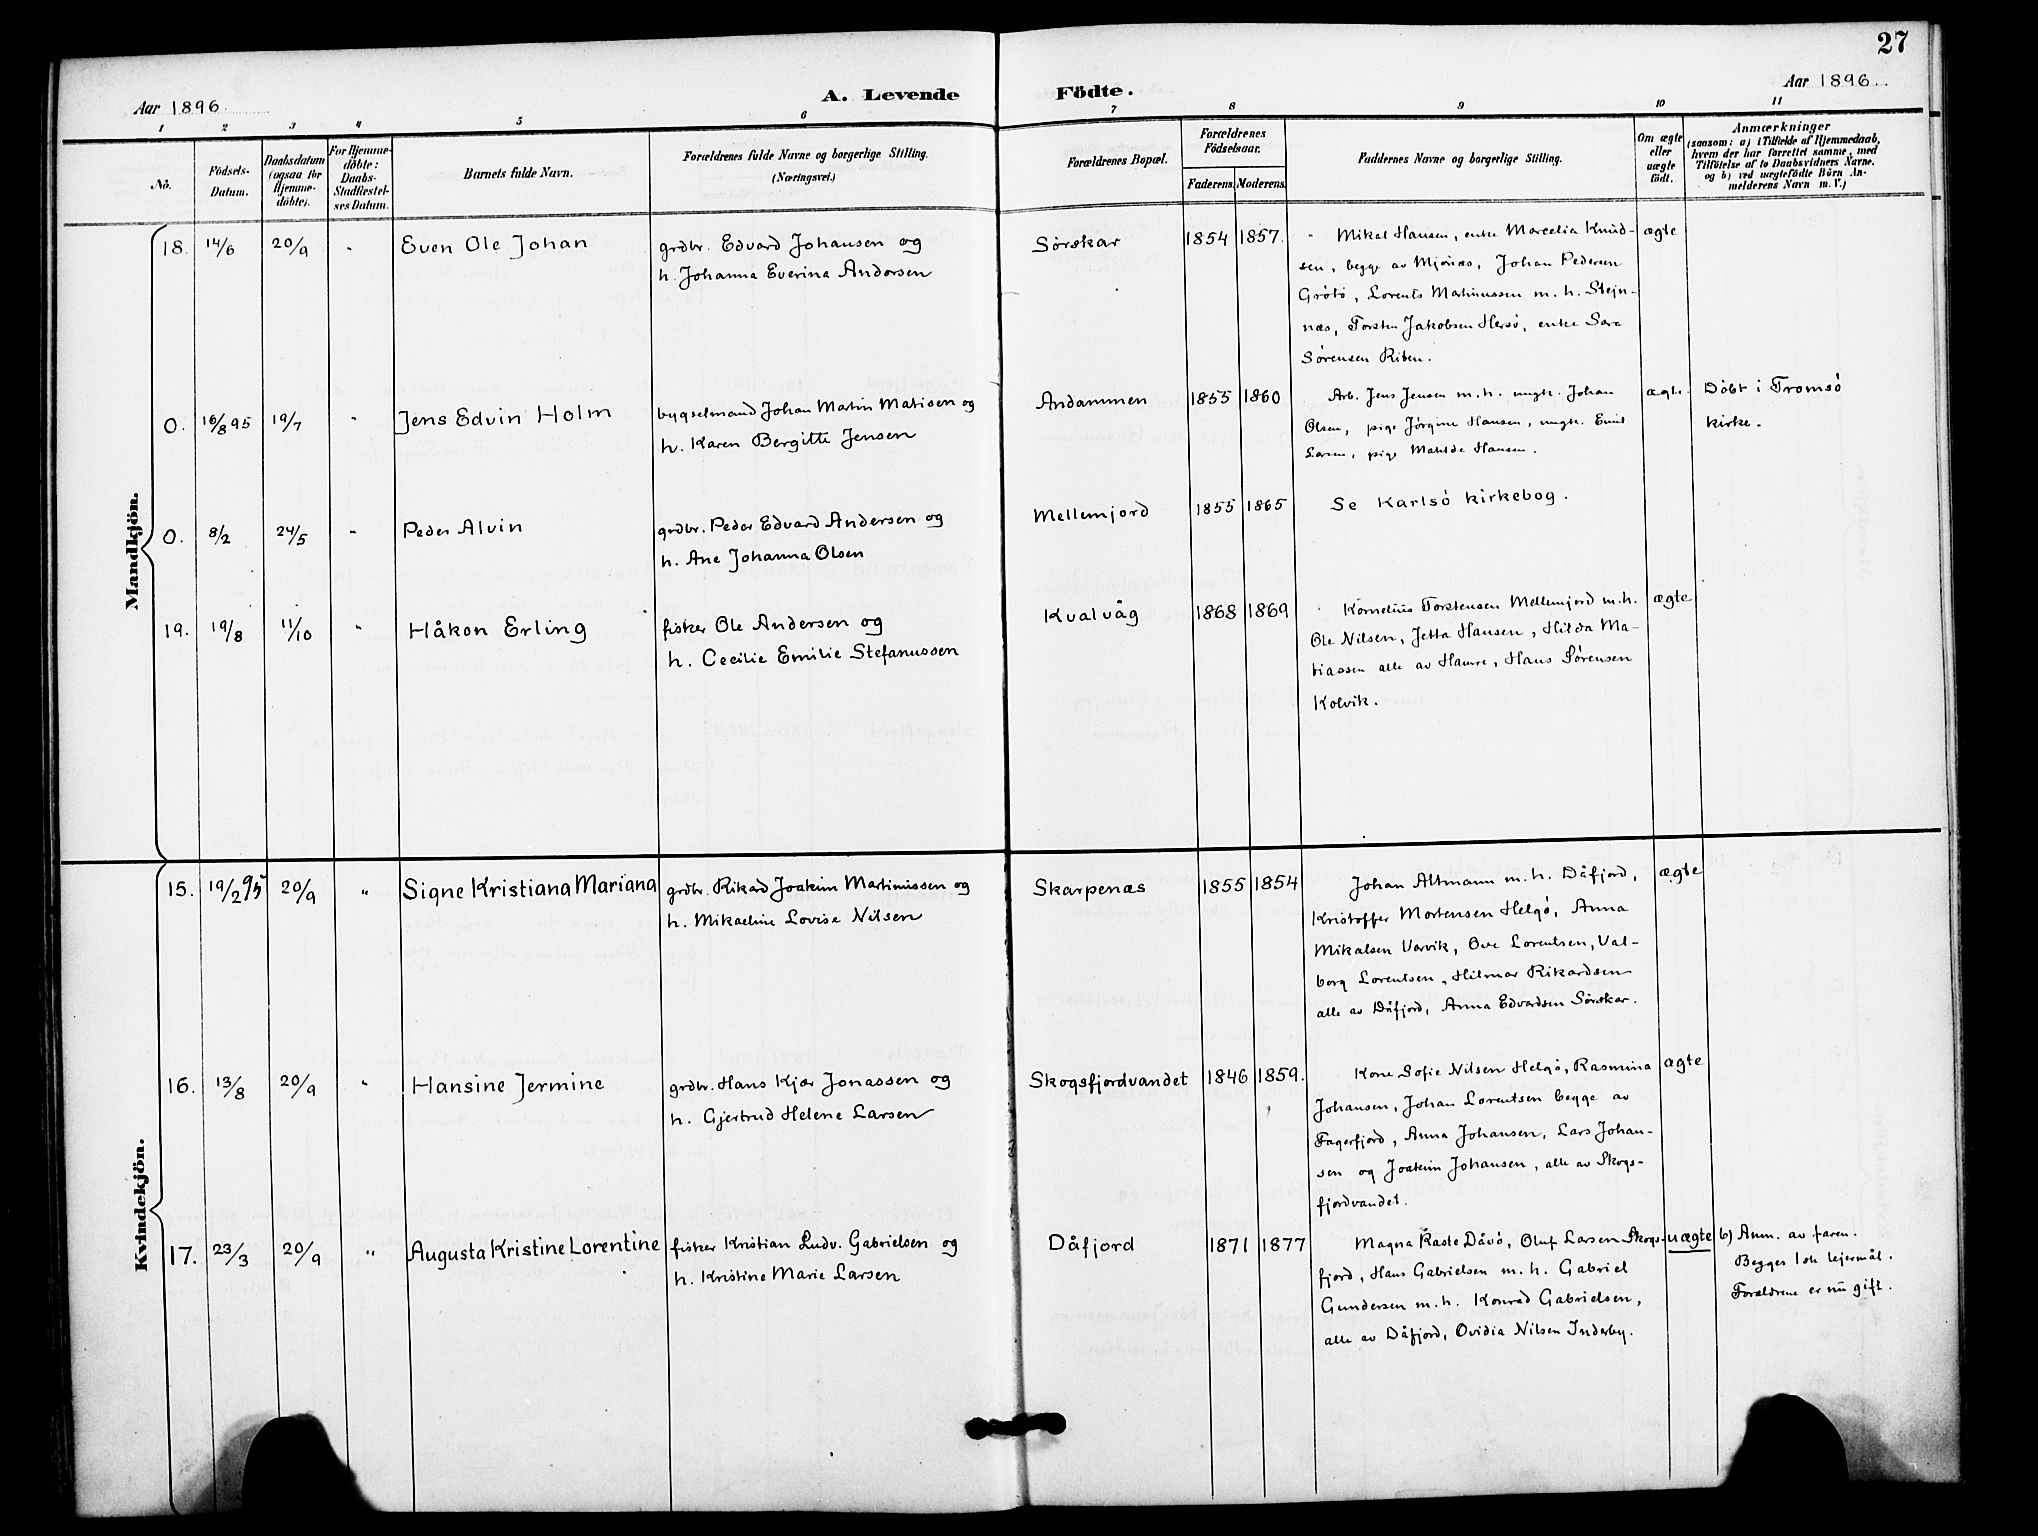 27
Aar 1896. A. Levende Födte. Aar 1896.
1 2 3 4 5 6 7 8 9 10 11
No.
Födsels-
Datum.
Daabsdatum
(ogsaa for
Hjemme-
döbte).
For Hjemme-
döbte:
Daabs-
Stadfæstel-
ses Datum.
Barnets fulde Navn.
Forældrenes fulde Navne og borgerlige Stilling.
(Næringsvei.)
Forældrenes Bopæl.
Forældrenes
Födselsaar.
Faderens. Moderens.
Faddernes Navne og borgerlige Stilling.
Om ægte
eller
uægte
födt.
Anmærkninger
(saasom: a) i Tilfælde af Hjemmedaab,
hvem der har forrettet samme, med
Tilföielse af to Daabsvidners Navne.
og b) ved uægtefödte Börn An-
melderens Navn m. V.)
Mandkjön.
18. 14/6 20/9 " Even Ole Johan
grdbr. Edvard Johansen og
h. Johanna Everina Andorsen
Sörskar 1854 1857.
" Mikal Hansen, enke Marcelia Knud-
sen, begge av Mjönæs, Johan Pedersen
Grötö, Lorents Martinussen m. h. Stejn-
næs, Torsten Jakobsen Hersö, enke Sara
Sörensen Riben.
ægte
0. 16/8 95 19/7 " Jens Edvin Holm
bygselmand Johan Martin Matisen og
h. Karen Bergitte Jensen
Andammen 1855 1860
Arb. Jens Jensen m. h. ungk. Johan
Olsen, pige Jörgine Hansen, ungk. Emil
Larsen, pige Matilda Hansen.
ægte.
Döbt i Tromsö
kirke.
0. 8/2 24/5 " Peder Alvin
grdbr. Peder Edvard Andersen og
h. Ane Johanna Olsen
Mellemjord 1855 1865
Se Karlsö kirkebog.
19. 19/8 11/10 " Håkon Erling
fisker Ole Andersen og
h. Cecilie Emilie Stefanussen
Kvalvåg 1868 1869
" Kornelius Torstensen Mellemjord m. h.
Ole Nilsen, Jetta Hansen, Hilda Ma-
tiassen alle av Hamre, Hans Sörensen
Kolvik.
ægte
Kvindekjön.
15. 19/2 95 20/9 " Signe Kristiana Mariana
grdbr. Rikard Joakim Martinussen og
h. Mikaeline Lovise Nilsen
Skarpenæs 1855 1854
Johan Altmann m. h. Dåfjord,
Kristoffer Mortensen Helgö, Anna
Mikalsen Varvik, Ove Lorentsen, Val-
borg Lorentsen, Hilmar Rikardsen
alle av Dåfjord, Anna Edvardsen Sörskar.
ægte
16. 13/8 20/9 " Hansine Jermine
grdbr. Hans Kjær Jonassen og
h. Gjertrud Helene Larsen
Skogsfjordvandet 1846 1859.
Kone Sofie Nilsen Helgö, Rasmina
Johansen, Johan Lorentsen begge av
Fagerfjord, Anna Johansen, Lars Johan-
sen og Joakim Johansen, alle av Skogs-
fjordvandet.
ægte
17. 23/3 20/9 " Augusta Kristine Lorentine
fisker Kristian Ludv. Gabrielsen og
h. Kristine Marie Larsen
Dåfjord 1871 1877
Magna Raste Dåvö, Oluf Larsen Skogs-
fjord, Hans Gabrielsen m. h. Gabriel
Gundersen m. h. Konrad Gabrielsen,
alle av Dåfjord, Ovidia Nilsen Inderby.
uægte
b) Anm. av faren.
Begges 1ste lejermål.
Forældrene er nu gift.